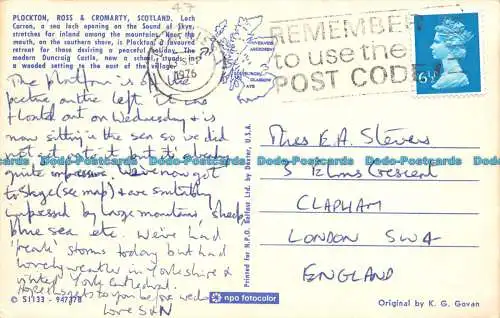 PLOCKTON, ROSS & CROMARTY, SCOTLAND. Loch
Carron, a sea loch opening on the Sound of Skye,
stretches for inland among the mountains. Near the
mouth, on the southern shore, is Plockton, a favoured
retreat for those desiring a peaceful holiday. The
modern Duncraig Castle, now a school, stands in
a wooded setting to the east of the village.
The platform is
picture on the left. It was
floated out on Wednesday & is
now sitting in the sea so we did
not get to it but it's
quite impressive. We've now got
to Skye (see map) & are suitably
impressed by large mountains, sheep,
blue sea etc. We've had
'freak' storms today but had
lovely weather in Yorkshire &
visited York Cathedral.
to you before weds
Love S&N
© S1133 - 94737B
1976
REMEMBER
to use the
POST CODE
6½
Mrs E.A. Stevens
3 Elms Crescent
CLAPHAM
LONDON SW4
ENGLAND
Printed for N.P.O. Belfast Ltd. by Dexter, U.S.A.
npo fotocolor
Original by K. G. Govan
Dodo-Postcards Dodo-Postcards Dodo-Postcards